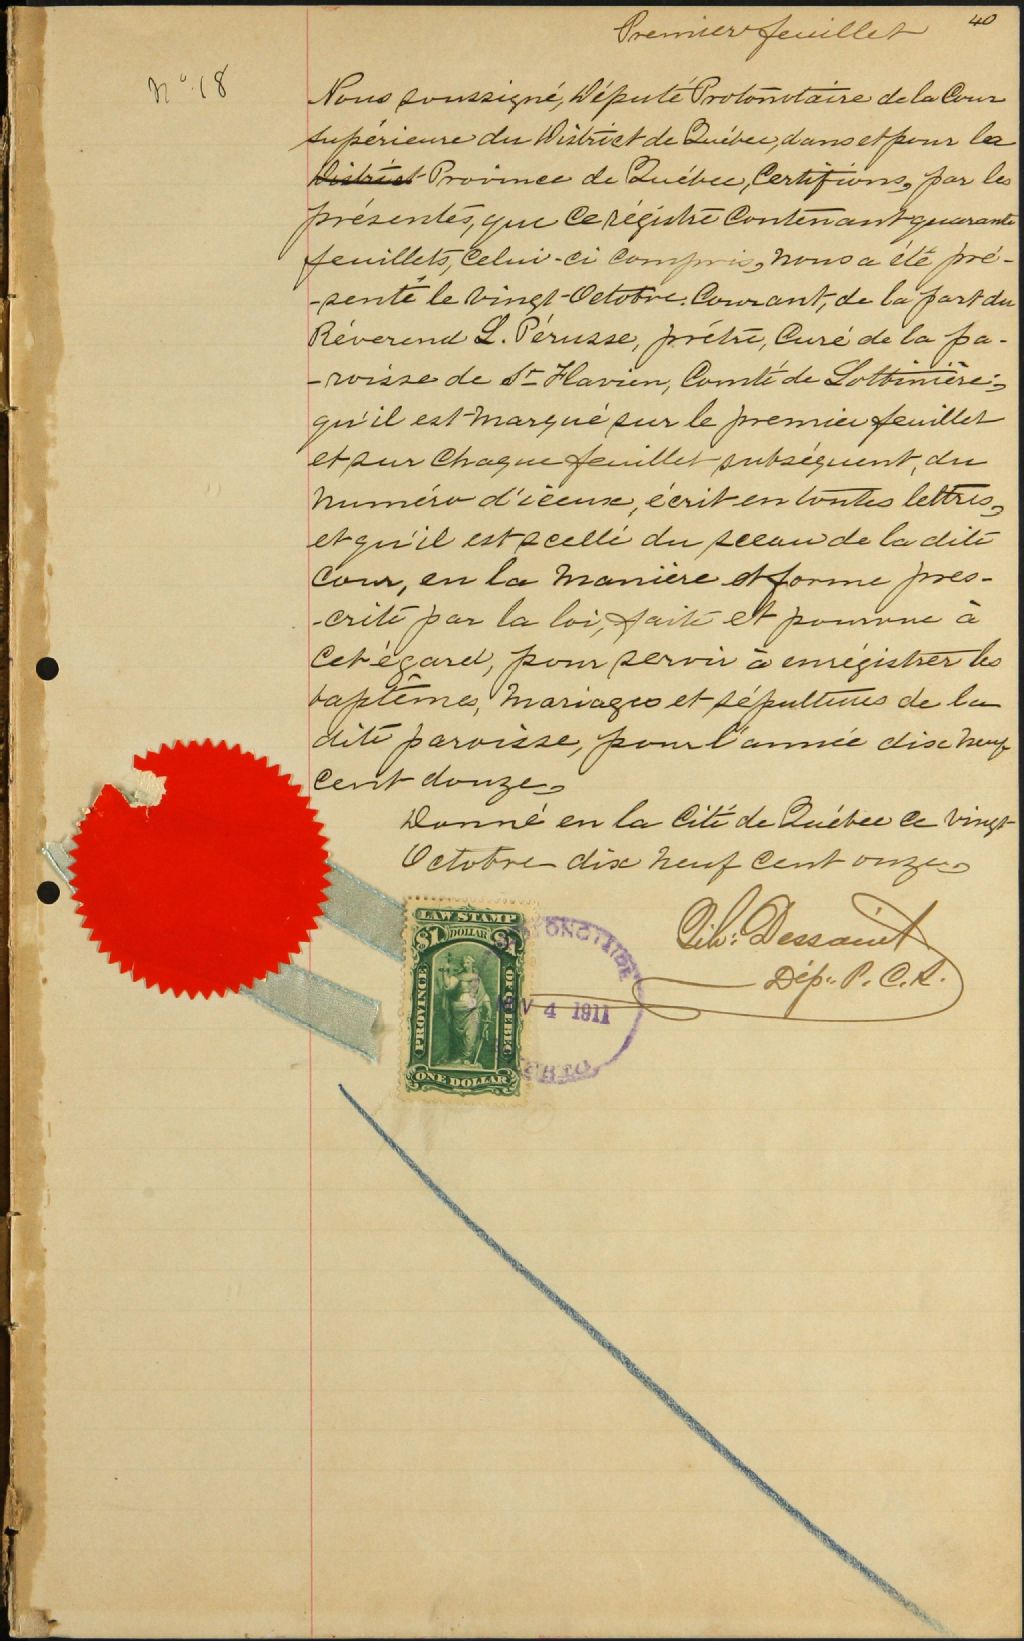 Premier feuillet
40
No. 18
Nous soussigné, Député Protonotaire de la Cour
supérieure du District de Québec, dans et pour la
District Province de Québec, Certifions, par les
présentes, que ce régistre contenant quarante
feuillets, celui-ci compris, nous a été pré-
-senté le vingt Octobre Courant, de la part du
Révérend L. Pérusse, prêtre, Curé de la pa-
-roisse de St Flavien, Comté de Lotbinière;
qu'il est marqué sur le premier feuillet
et sur chaque feuillet subséquent, du
numéro d'iceux, écrit en toutes lettres,
et qu'il est scellé du sceau de la dite
Cour, en la manière et forme pres-
-crite par la loi, faite et pourvue à
cet égard, pour servir à enrégistrer les
baptêmes, mariages et sépultures de la
dite paroisse, pour l'année dix neuf
cent douze.
Donné en la Cité de Québec ce vingt
Octobre dix neuf cent onze.
Dessaint
Dép. P. C. S.
LAW STAMP
$1 DOLLAR $1
PROVINCE OF QUEBEC
ONE DOLLAR
4 1911